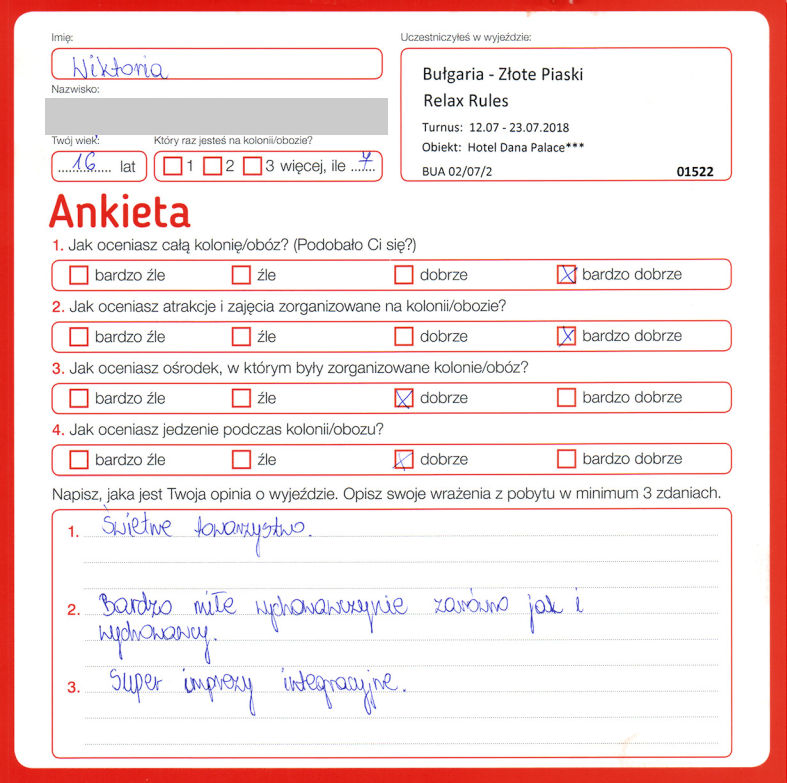 Imię:
Wiktoria
Nazwisko:
Twój wiek:
16 lat
Który raz jesteś na kolonii/obozie?
1 2 3 więcej, ile ...7...
Uczestniczyłeś w wyjeździe:
Bułgaria - Złote Piaski
Relax Rules
Turnus: 12.07 - 23.07.2018
Obiekt: Hotel Dana Palace***
BUA 02/07/2 01522
Ankieta
1. Jak oceniasz całą kolonię/obóz? (Podobało Ci się?)
bardzo źle źle dobrze bardzo dobrze
2. Jak oceniasz atrakcje i zajęcia zorganizowane na kolonii/obozie?
bardzo źle źle dobrze bardzo dobrze
3. Jak oceniasz ośrodek, w którym były zorganizowane kolonie/obóz?
bardzo źle źle dobrze bardzo dobrze
4. Jak oceniasz jedzenie podczas kolonii/obozu?
bardzo źle źle dobrze bardzo dobrze
Napisz, jaka jest Twoja opinia o wyjeździe. Opisz swoje wrażenia z pobytu w minimum 3 zdaniach.
1. Świetne towarzystwo.
2. Bardzo miłe wychowawczynie zarówno jak i
wychowawcy.
3. Super imprezy integracyjne.